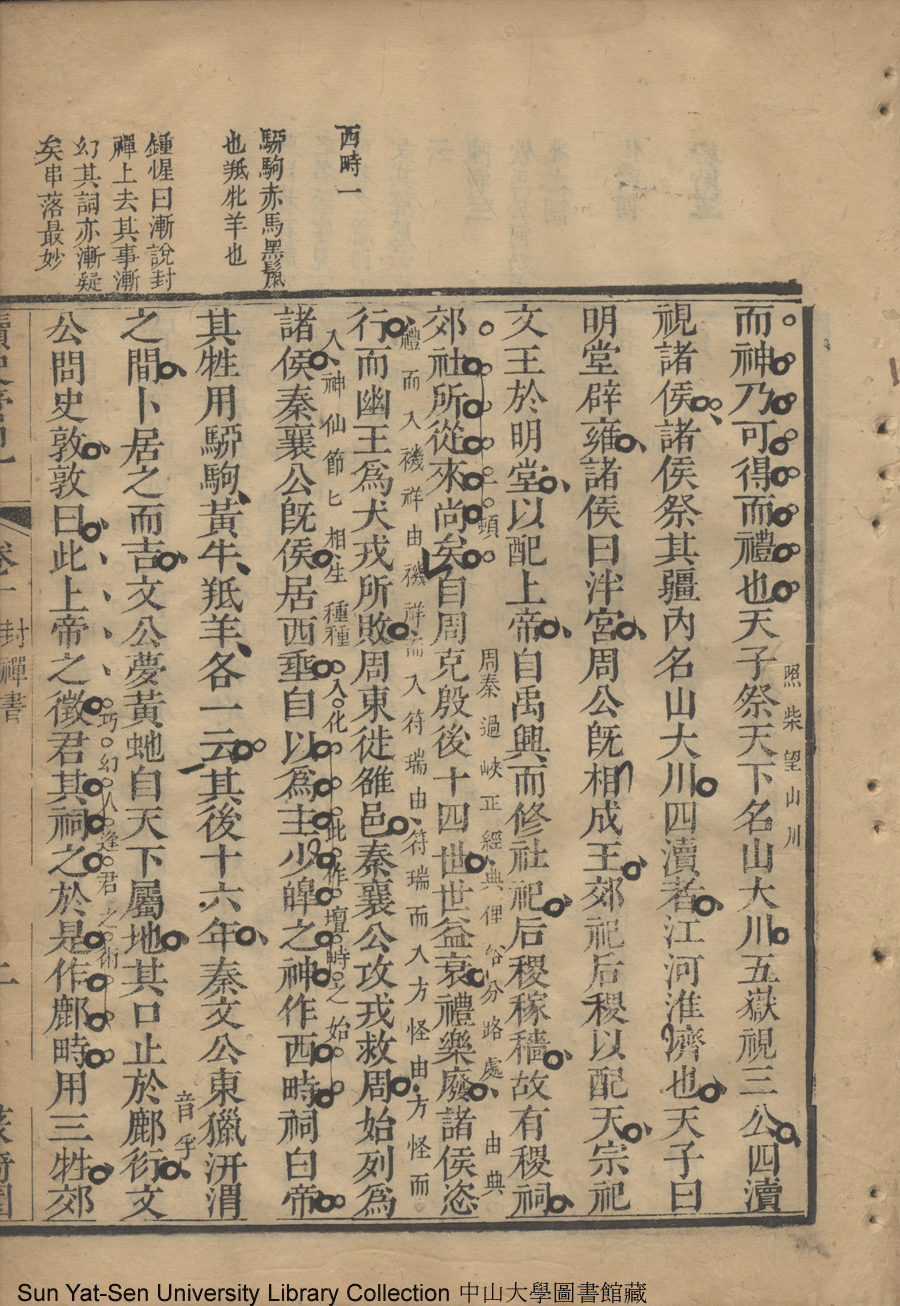 西畤一
騂駒赤馬黑鬣
也羝牝羊也
鍾惺曰漸說封
禪上去其事漸
幻其詞亦漸疑
矣串落最妙
而神乃可得而禮也天子祭天下名山大川五嶽視三公四瀆
照柴望山川
視諸侯諸侯祭其疆內名山大川四瀆者江河淮濟也天子曰
明堂辟雍諸侯曰泮宮周公旣相成王郊祀后稷以配天宗祀
文王於明堂以配上帝自禹興而修社祀后稷稼穡故有稷祠
一頓
周秦過峽正經典俚俗分路處由典
郊社所從來尚矣自周克殷後十四世世益衰禮樂廢諸侯恣
禮而入禨祥由禨祥而入符瑞由符瑞而入方怪由方怪而
行而幽王爲犬戎所敗周東徙雒邑秦襄公攻戎救周始列爲
入神仙節匕相生種種入化此作壇畤之始
諸侯秦襄公旣侯居西垂自以爲主少皥之神作西畤祠白帝
其牲用騂駒黃牛羝羊各一云其後十六年秦文公東獵汧渭
之間卜居之而吉文公夢黃虵自天下屬地其口止於鄜衍文
音孚
公問史敦敦曰此上帝之徵君其祠之於是作鄜畤用三牲郊
巧幻人逢君之術
卷十 封禪書
二